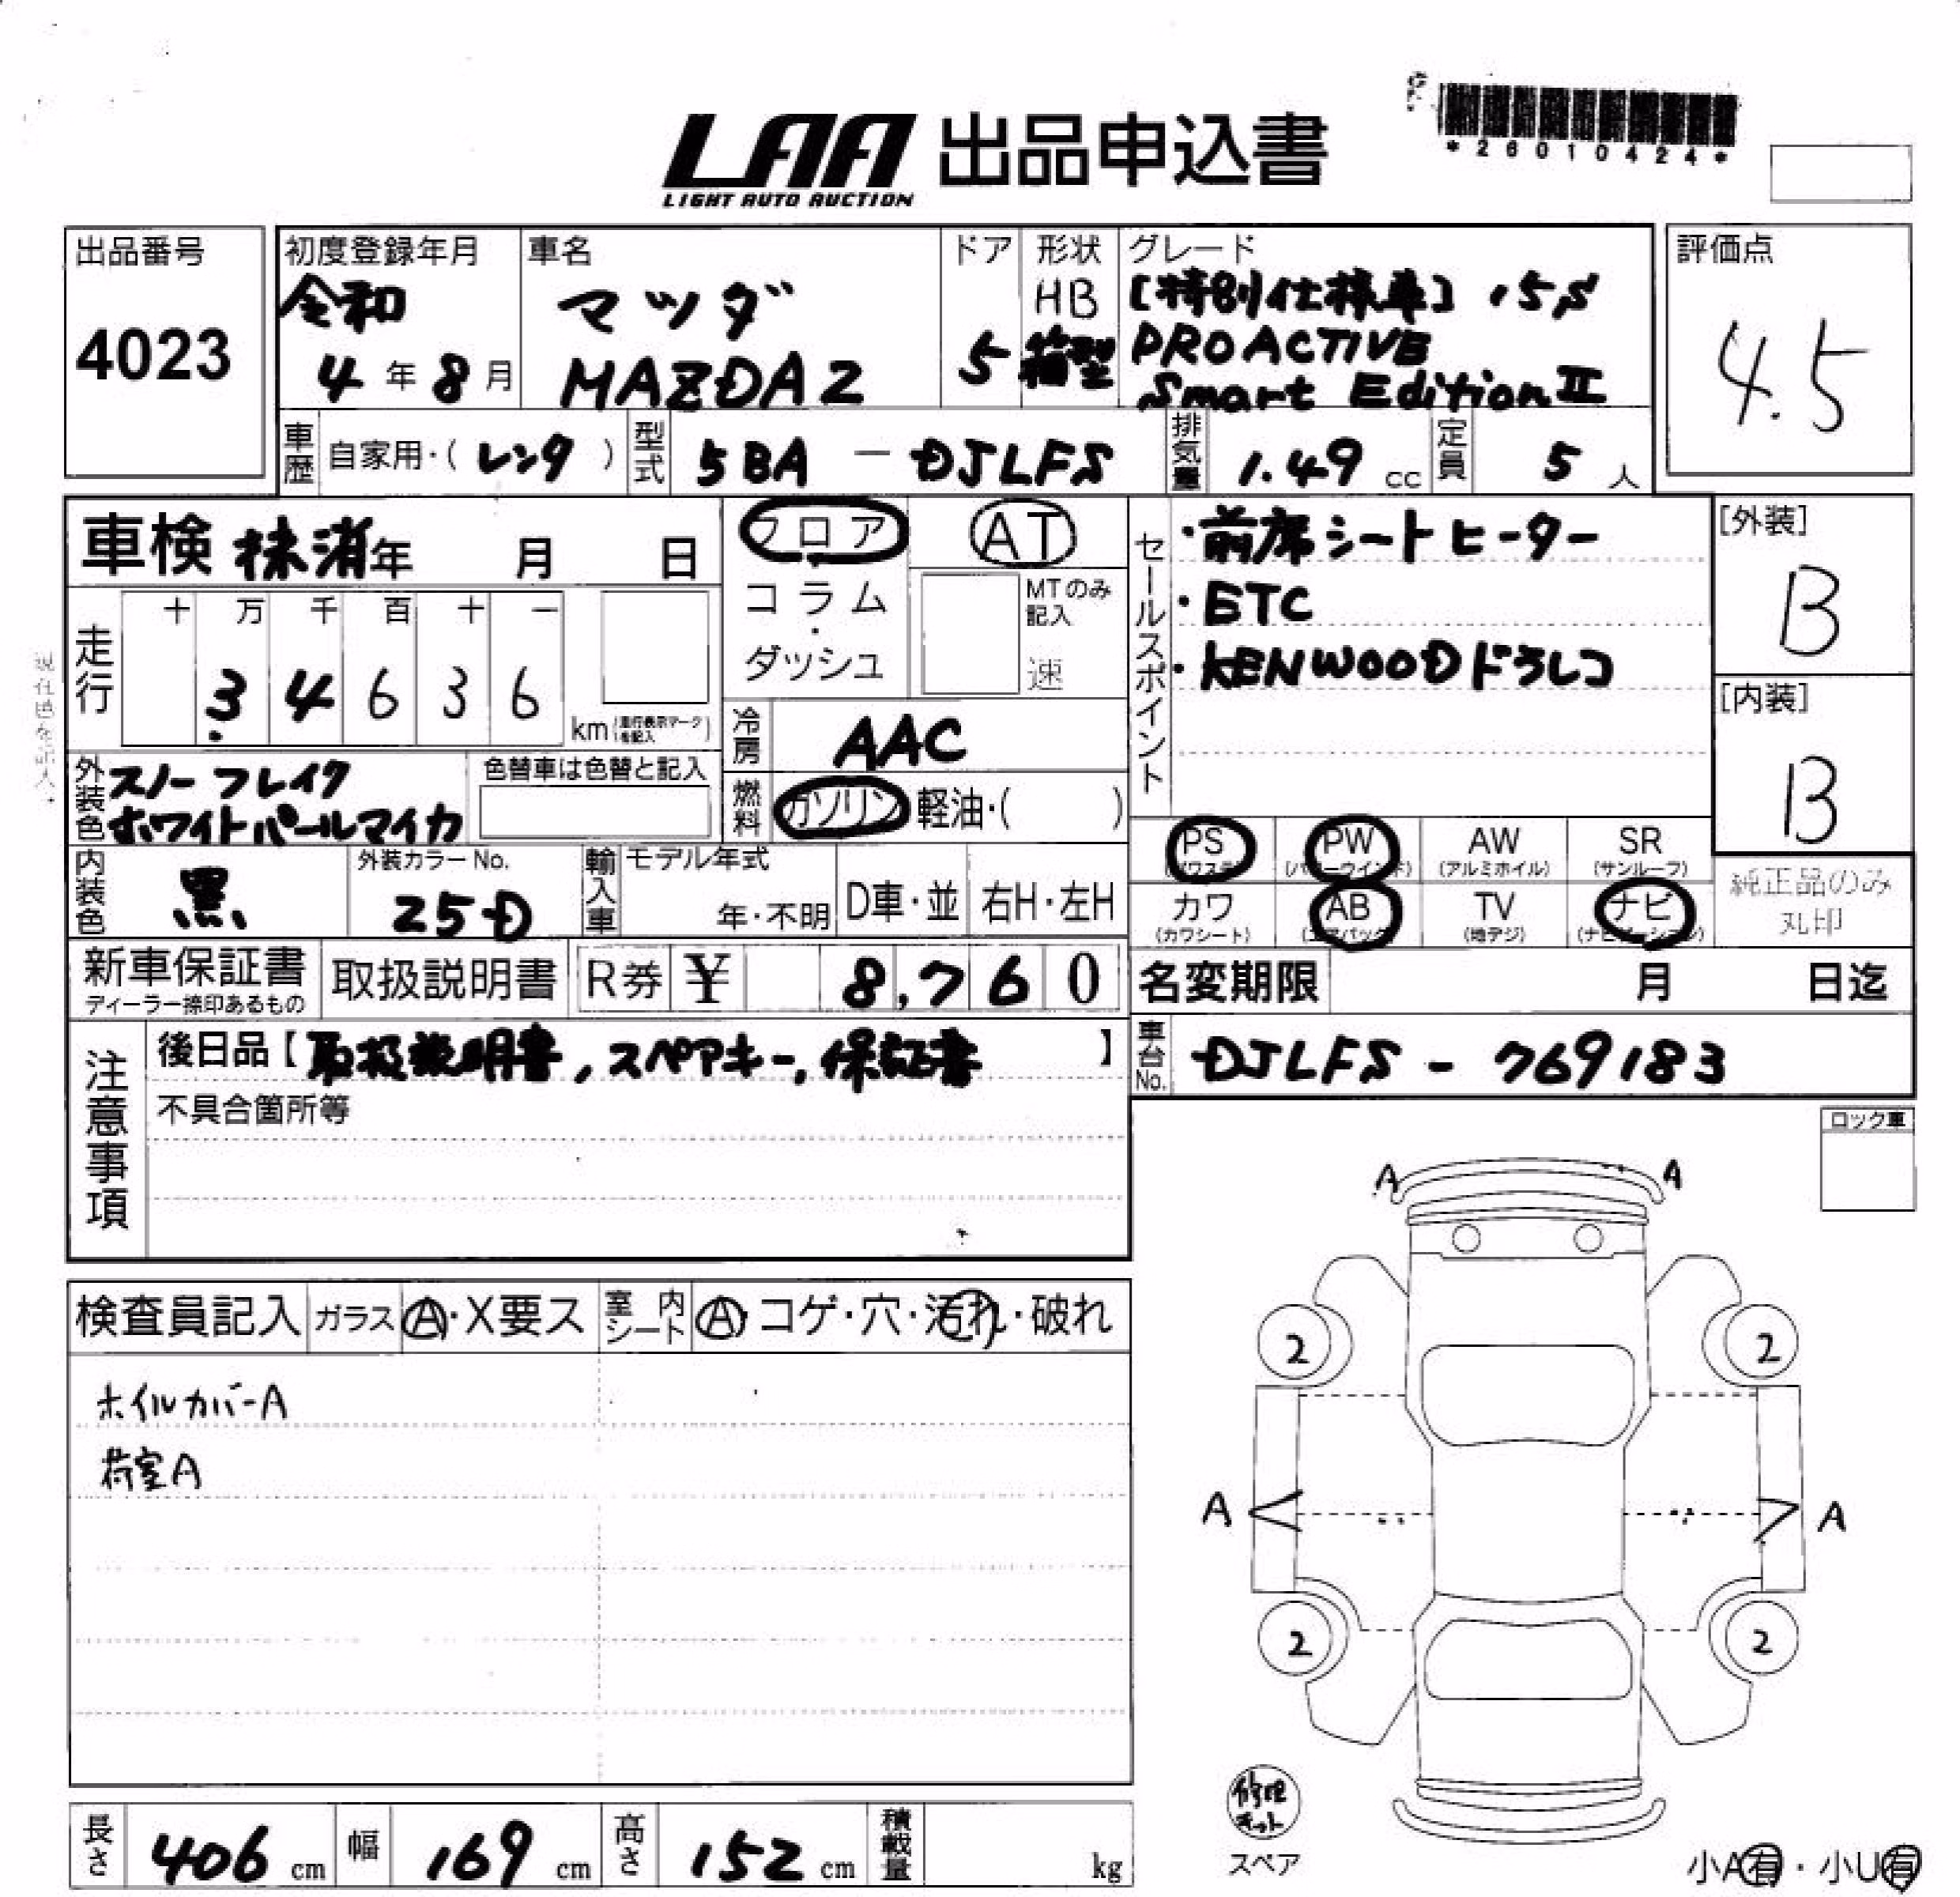 LAA 出品申込書
LIGHT AUTO AUCTION
*26010424*
出品番号
4023
初度登録年月
令和
4年8月
車名
マツダ
MAZDA2
ドア
5
形状
HB
箱型
グレード
[特別仕様車] 15S
PROACTIVE
Smart Edition II
評価点
4.5
車歴 自家用・(レンタ)
型式 5BA - DJLFS
排気量 1.49 cc
定員 5人
車検 抹消年 月 日
走行
十 万 千 百 十 一
3 4 6 3 6
km(走行表示マークを記入)
フロア
コラム
・
ダッシュ
AT
MTのみ
記入
速
冷房 AAC
燃料 ガソリン 軽油・( )
セールスポイント
・前席シートヒーター
・ETC
・KENWOODドラレコ
[外装]
B
[内装]
B
外装色
スノーフレイク
ホワイトパールマイカ
色替車は色替と記入
内装色 黒
外装カラーNo.
25D
輸入車
モデル年式
年・不明
D車・並
右H・左H
PS
(パワステ)
PW
(パワーウインド)
AW
(アルミホイル)
SR
(サンルーフ)
カワ
(カワシート)
AB
(エアバック)
TV
(地デジ)
ナビ
(ナビゲーション)
純正品のみ
丸印
現在色を記入.
新車保証書
ディーラー捺印あるもの
取扱説明書
R券 ¥ 8,760
名変期限 月 日迄
車台No. DJLFS - 769183
注意事項
後日品【取扱説明書, スペアキー, 保証書】
不具合箇所等
ロック車
検査員記入
ガラス A・X要ス
室内シート A・コゲ・穴・汚れ・破れ
ホイルカバーA
荷室A
A A
2 2
A A
2 2
修理
キット
スペア
小A有・小U有
長さ 406 cm
幅 169 cm
高さ 152 cm
積載量 kg